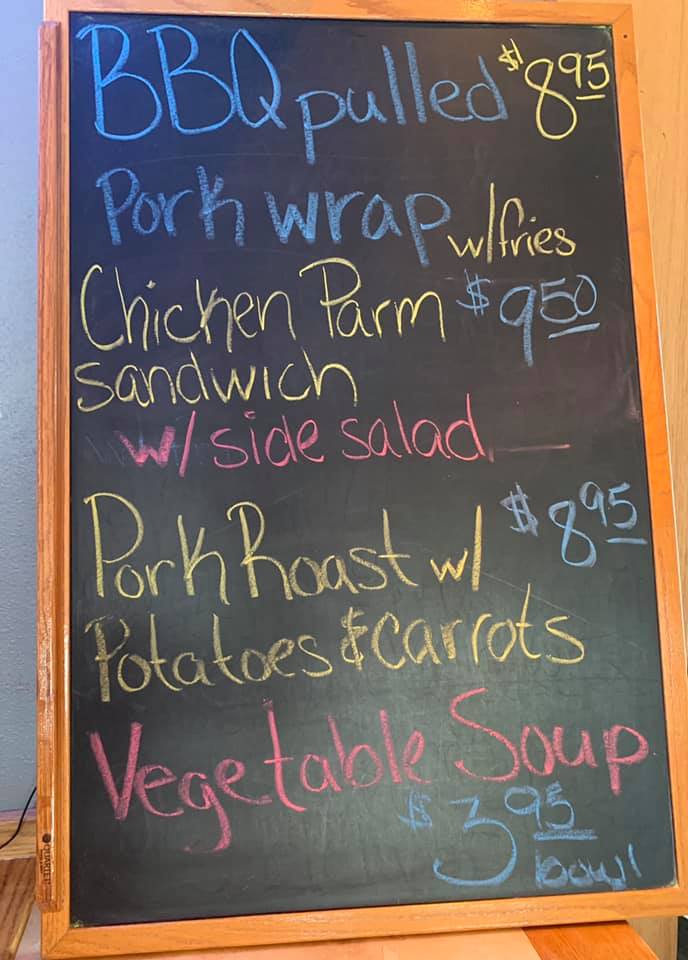 BBQ pulled $8.95
Pork wrap w/fries
Chicken Parm $9.50
sandwich
w/ side salad
Pork Roast w/ $8.95
Potatoes & carrots
Vegetable Soup
$3.95
bowl
QUARTET